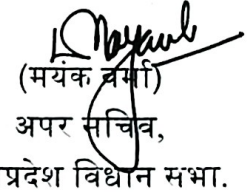 (मयंक वर्मा)
अपर सचिव,
प्रदेश विधान सभा.